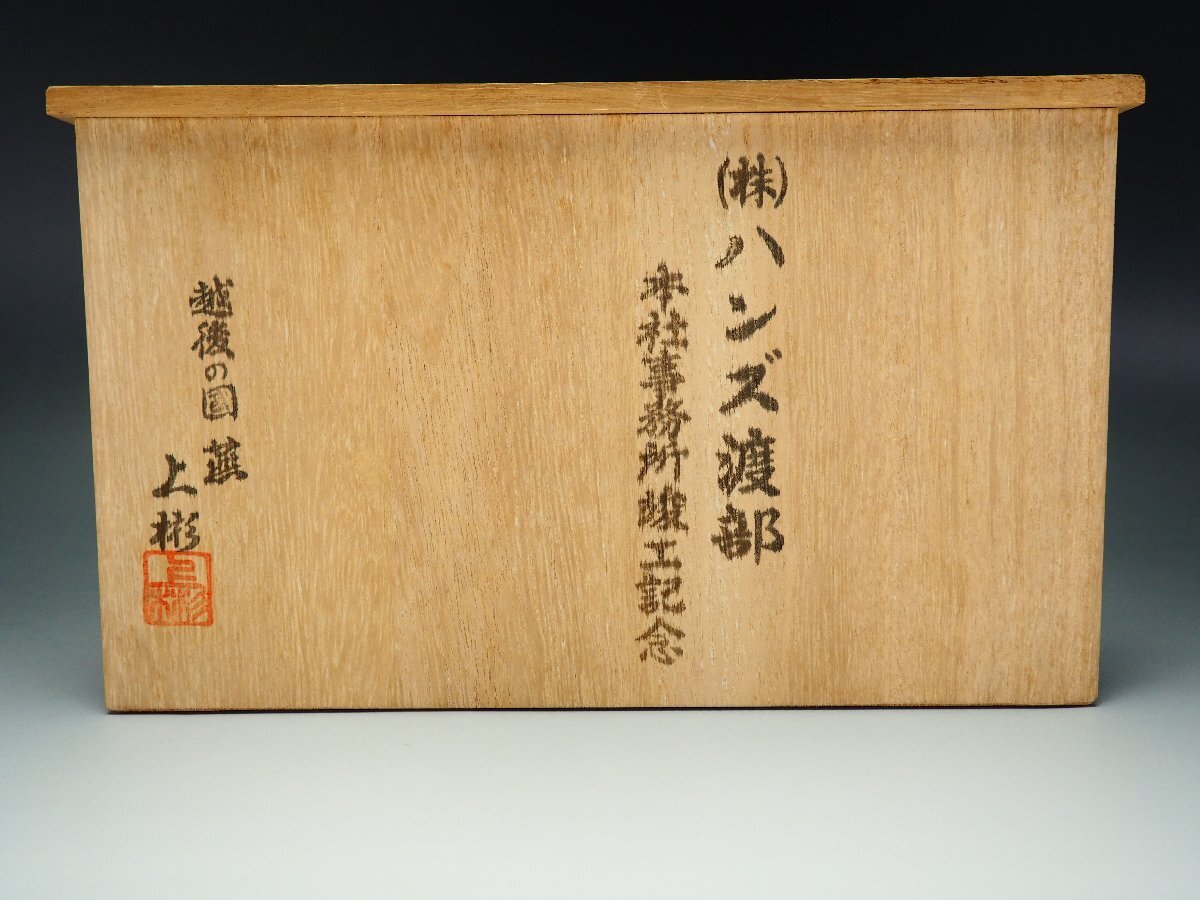 (株)ハンズ渡部
本社事務所竣工記念
越後の國 燕
上彬
上彬